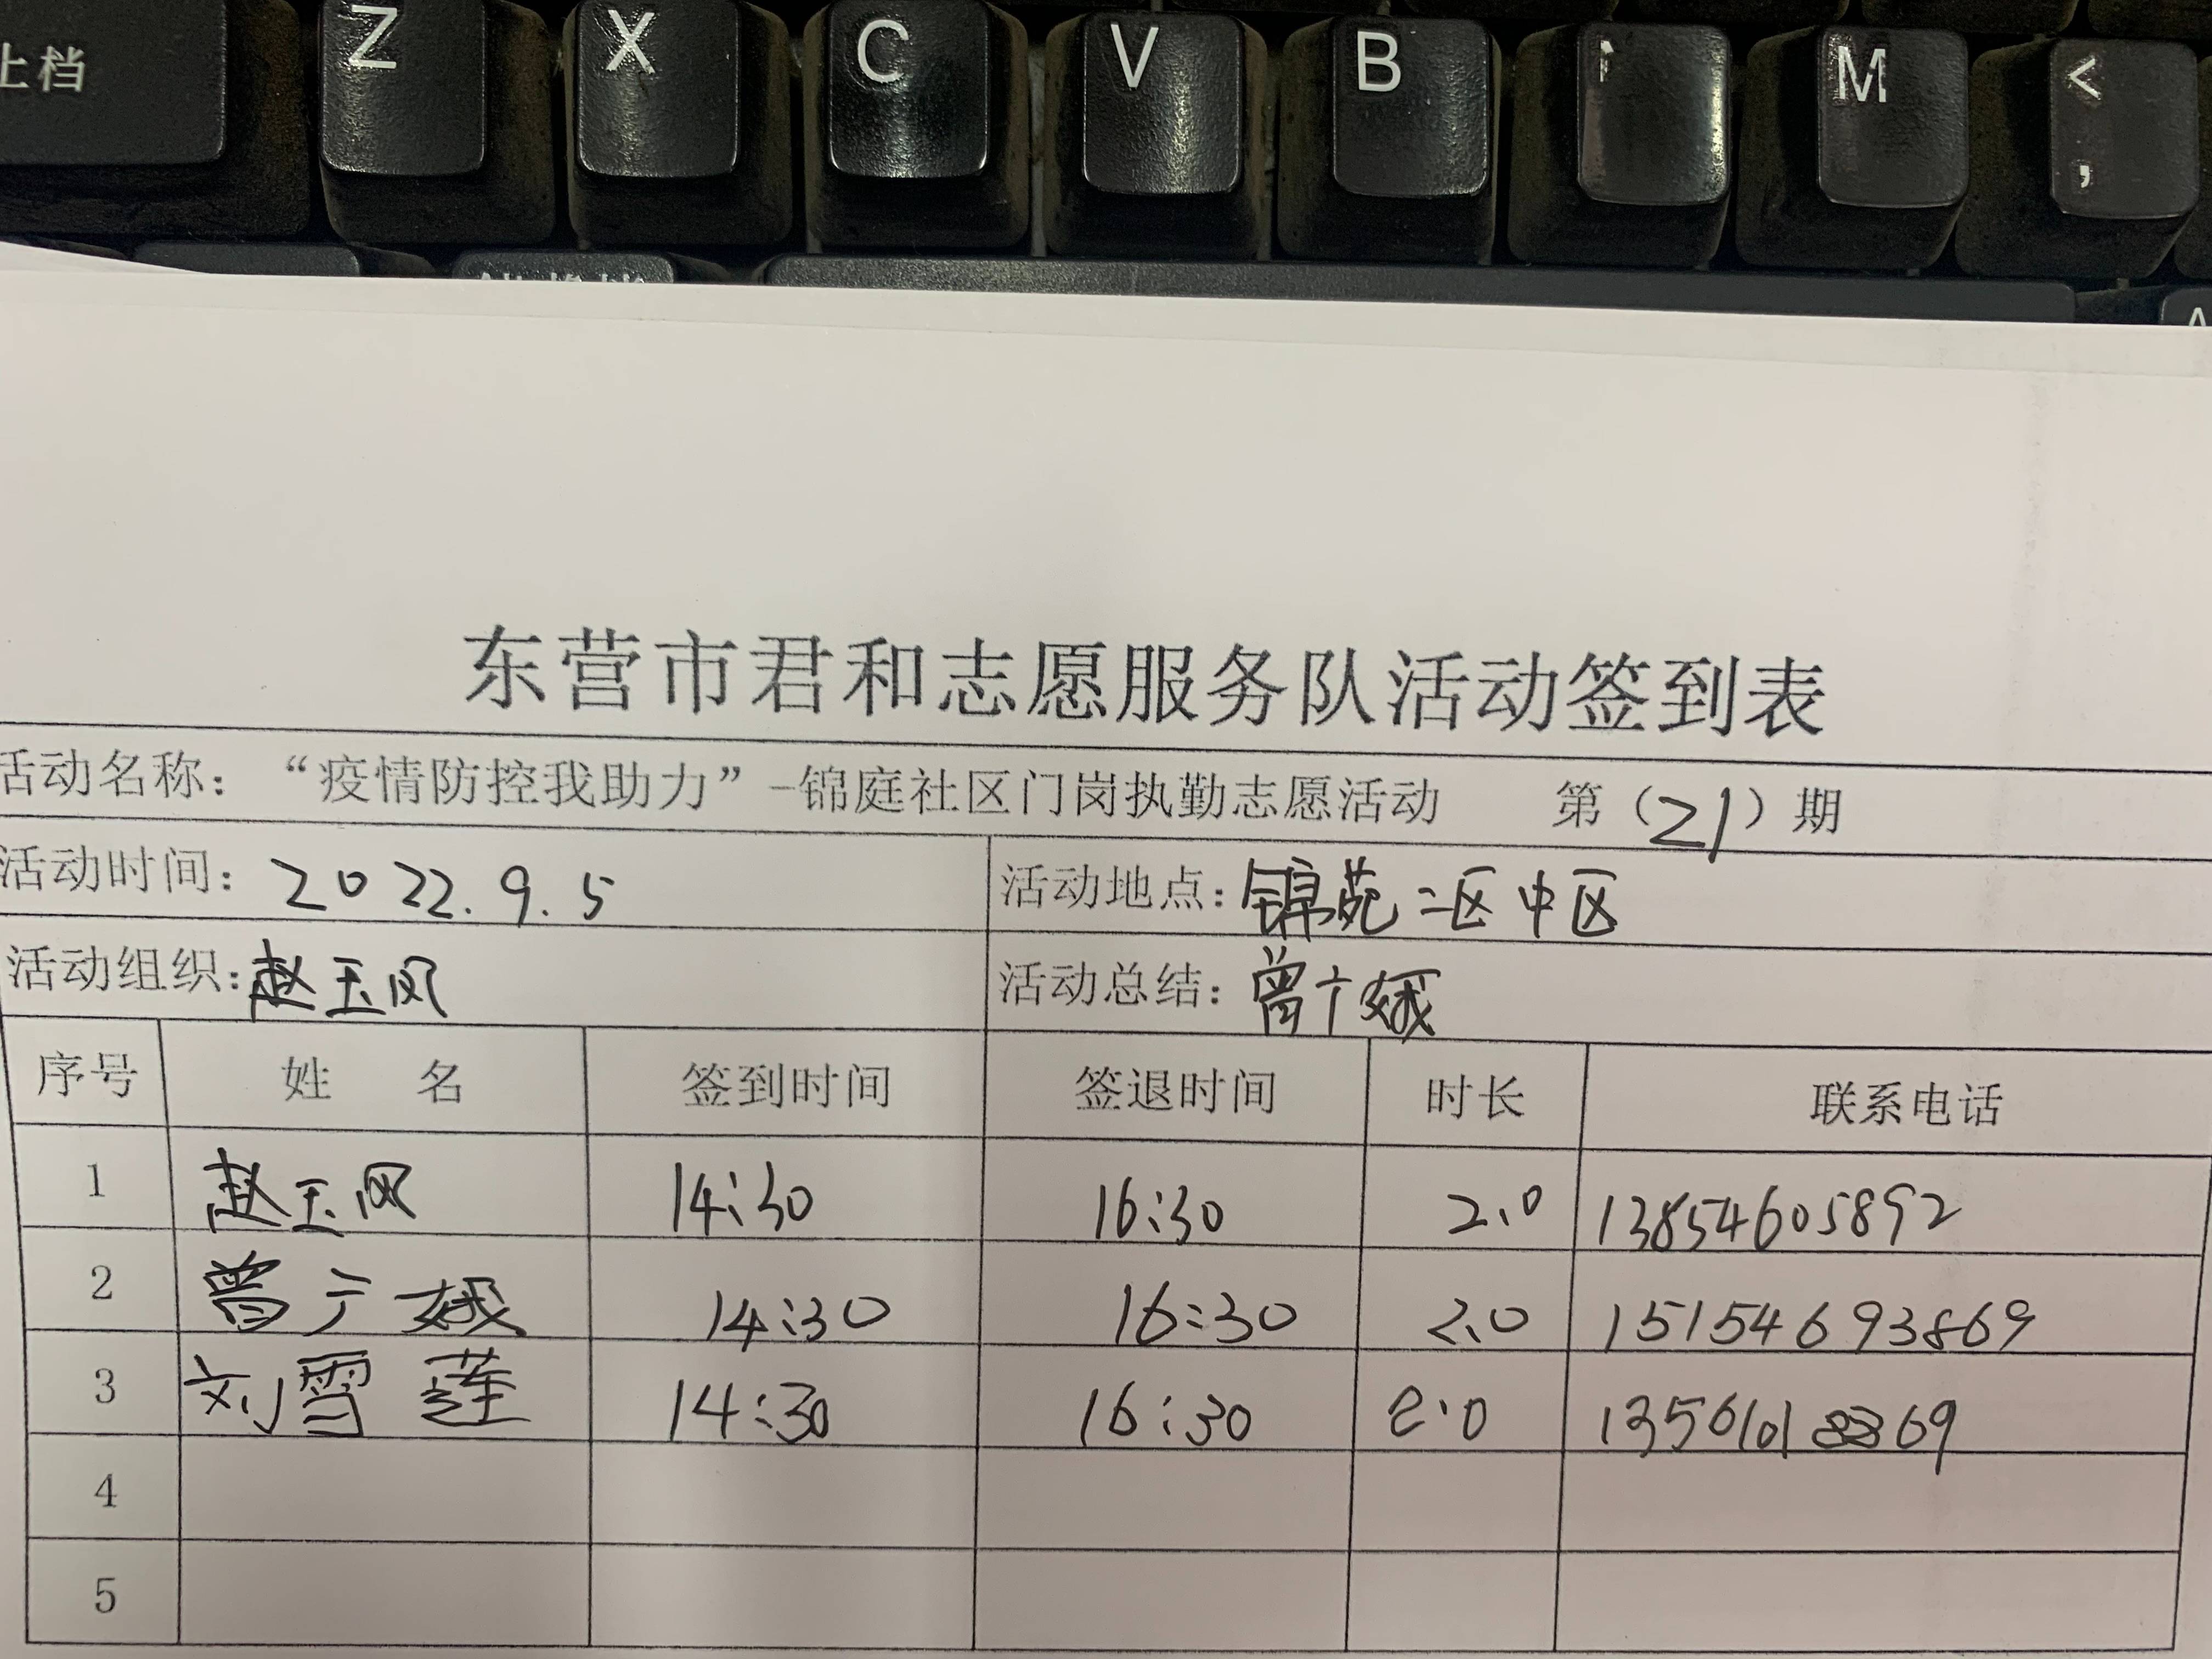 上档 Z X C V B M < ,
东营市君和志愿服务队活动签到表
活动名称：“疫情防控我助力”-锦庭社区门岗执勤志愿活动 第（21）期
活动时间：2022.9.5 活动地点：锦苑二区中区
活动组织：赵玉凤 活动总结：曾广娥
序号 姓 名 签到时间 签退时间 时长 联系电话
1 赵玉凤 14:30 16:30 2.0 13854605892
2 曾广娥 14:30 16:30 2.0 15154693869
3 刘雪莲 14:30 16:30 2.0
4
5